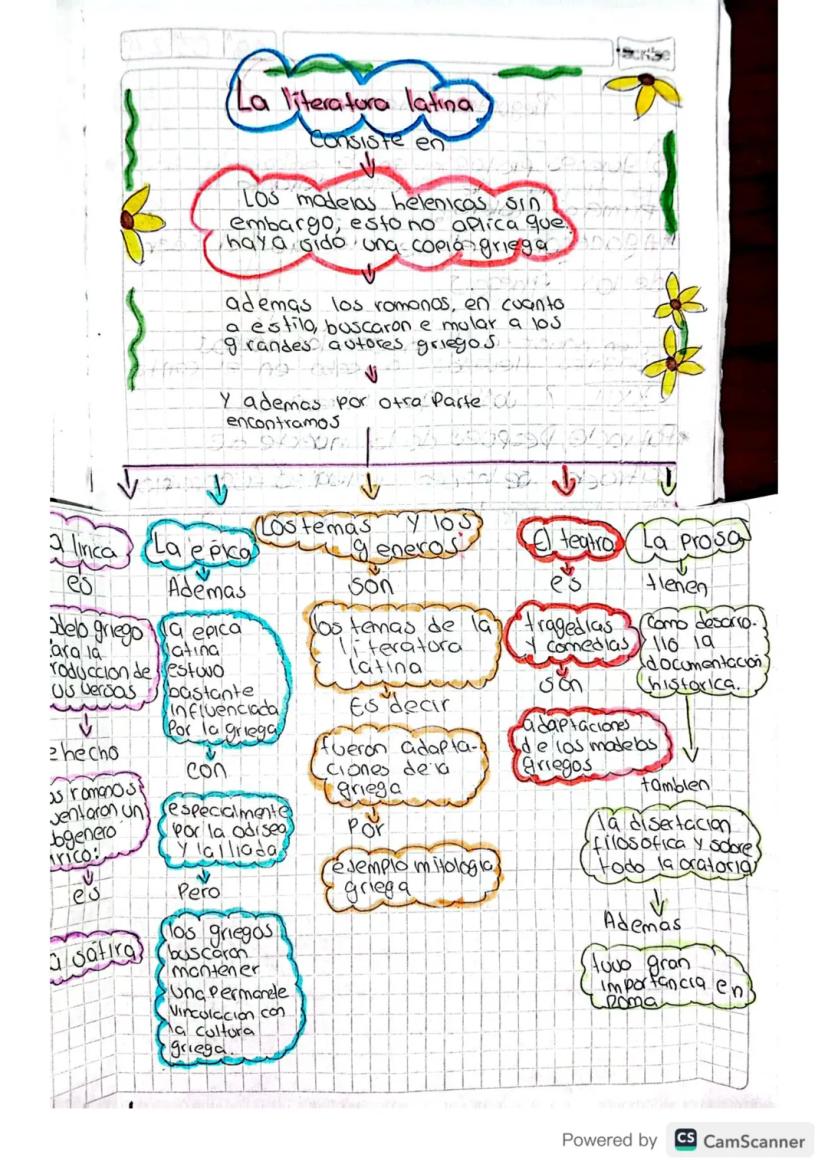 scribe
La literatura latina
Consiste en
Los modelos helenicos sin
embargo, esto no aplica que
haya sido una copia griega
además los romanos, en cuanto
a estilo, buscaron e mular a los
grandes autores griegos
Y ademas por otra Parte
encontramos
a lirica
es
delo griego
ara la
roduccion de
us versos
e hecho
os romanos
ventaron un
bgenero
irico:
es
a sátira
La epica
Ademas
la epica
latina
estuvo
bastante
influenciada
Por la griega
con
especialmente
por la odisea
y la Iliada
Pero
los griegos
buscaron
mantener
una Permande
vinculacion con
la cultura
griega
Los temas y los
generos
son
los temas de la
literatura
latina
Es decir
fueron adapta-
ciones de la
griega
Por
ejemplo mitologia
griega
El teatro
es
tragedias
y comedias
son
adaptaciones
de los modelos
griegos
La prosa
tienen
como desarro-
llo la
documentación
historica.
tambien
la disertacion
filosofica y sobre
todo la oratoria
Ademas
tuvo gran
importancia en
Roma
Powered by CS CamScanner